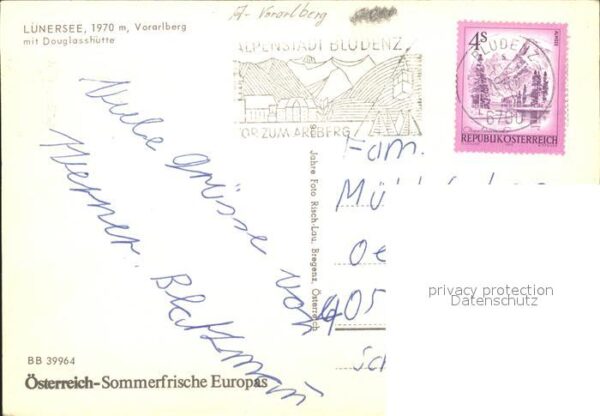 A-Vorarlberg
LÜNERSEE, 1970 m, Vorarlberg
mit Douglasshütte
ALPENSTADT BLUDENZ
TOR ZUM ARLBERG
BLUDENZ
6700
4S
REPUBLIK ÖSTERREICH
Viele Grüsse von
Werner
Fam.
405
Jahre Foto Risch-Lau, Bregenz, Österreich
privacy protection
Datenschutz
BB 39964
Österreich-Sommerfrische Europas